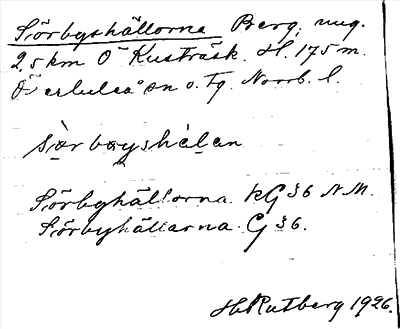 Sörbyhällorna Berg, ung.
2,5 km O Kusträsk. H. 175 m.
Överluleå sn o. Tg. Norrb. l.
Sörbyhällorna. kG 36 NM.
Sörbyhällarna. G 36.
H. Rutberg 1926.